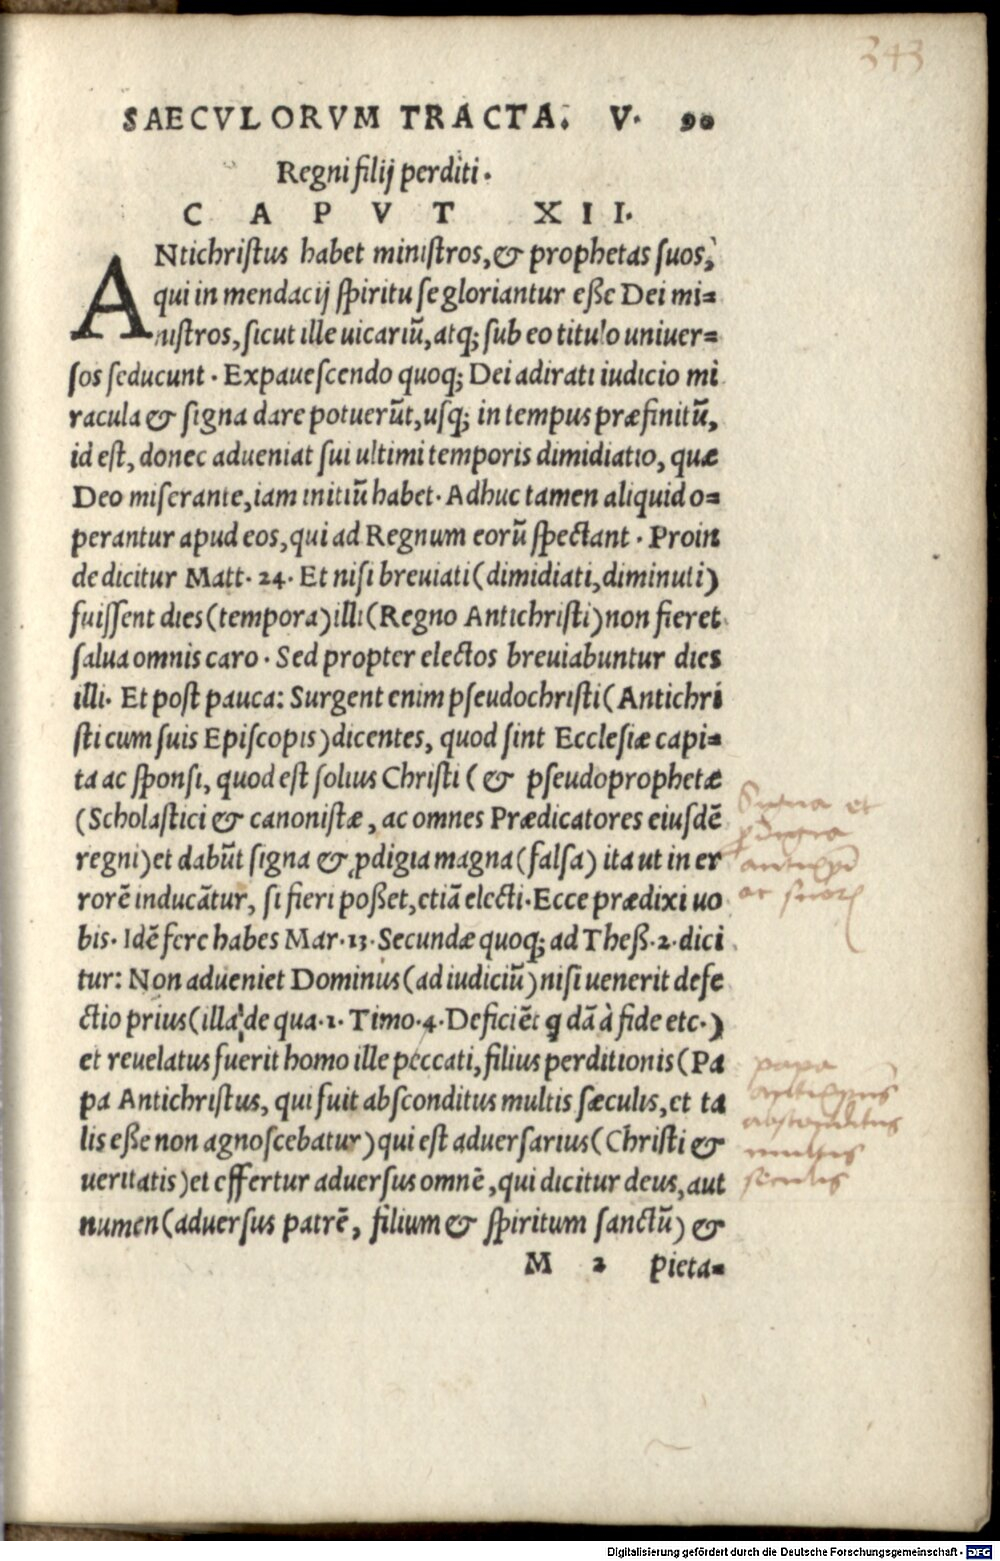 343
SAECVLORVM TRACTA. V. 90
Regni filij perditi.
CAPVT XII.
ANtichristus habet ministros, & prophetas suos,
qui in mendacij spiritu se gloriantur eße Dei mi=
nistros, sicut ille uicariū, atq; sub eo titulo uniuer=
sos seducunt. Expauescendo quoq; Dei adirati iudicio mi
racula & signa dare potuerūt, usq; in tempus præfinitū,
id est, donec adueniat sui ultimi temporis dimidiatio, quæ
Deo miserante, iam initiū habet. Adhuc tamen aliquid o=
perantur apud eos, qui ad Regnum eorū spectant. Proin
de dicitur Matt. 24. Et nisi breuiati (dimidiati, diminuti)
fuissent dies (tempora) illi (Regno Antichristi) non fieret
salua omnis caro. Sed propter electos breuiabuntur dies
illi. Et post pauca: Surgent enim pseudochristi (Antichri
sti cum suis Episcopis) dicentes, quod sint Ecclesiæ capi=
ta ac sponsi, quod est solius Christi (& pseudoprophetæ
(Scholastici & canonistæ, ac omnes Prædicatores eiusdē
regni) et dabūt signa & ꝓdigia magna (falsa) ita ut in er
rorē inducātur, si fieri poßet, etiā electi. Ecce prædixi uo
bis. Idē fere habes Mar. 13. Secundæ quoq; ad Theß. 2. dici
tur: Non adueniet Dominus (ad iudiciū) nisi uenerit defe
ctio prius (illa, de qua. 1. Timo. 4. Deficiēt q dā à fide etc.)
et reuelatus fuerit homo ille peccati, filius perditionis (Pa
pa Antichristus, qui fuit absconditus multis sæculis, et ta
lis eße non agnoscebatur) qui est aduersarius (Christi &
ueritatis) et effertur aduersus omnē, qui dicitur deus, aut
numen (aduersus patrē, filium & spiritum sanctū) &
M 2 pieta=
Signa et
ꝓdigia
antixpi
ac suorꝝ
papa
antixpus
absconditus
multis
seculis
Digitalisierung gefördert durch die Deutsche Forschungsgemeinschaft - DFG